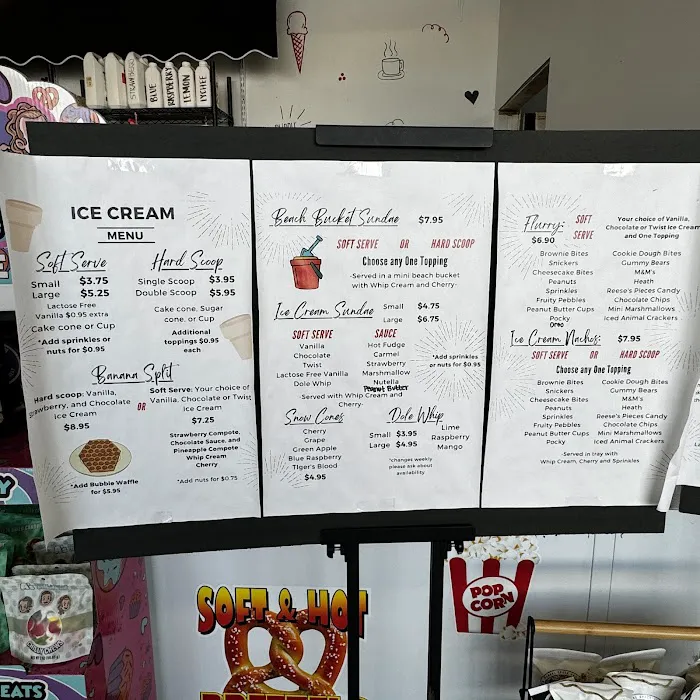 STRAWBERRY
BLUE
RASPBERRY
LEMON
LYCHEE
ICE CREAM
MENU
Soft Serve
Small $3.75
Large $5.25
Lactose Free
Vanilla $0.95 extra
Cake cone or Cup
*Add sprinkles or
nuts for $0.95
Hard Scoop
Single Scoop $3.95
Double Scoop $5.95
Cake cone, Sugar
cone, or Cup
Additional
toppings $0.95
each
Banana Split
Hard scoop: Vanilla,
Strawberry, and Chocolate
Ice Cream
$8.95
OR
Soft Serve: Your choice of
Vanilla, Chocolate or Twist
Ice Cream
$7.25
Strawberry Compote,
Chocolate Sauce, and
Pineapple Compote
Whip Cream
Cherry
*Add Bubble Waffle
for $5.95
*Add nuts for $0.75
Beach Bucket Sundae $7.95
SOFT SERVE OR HARD SCOOP
Choose any One Topping
-Served in a mini beach bucket
with Whip Cream and Cherry-
Ice Cream Sundae
Small $4.75
Large $6.75
SOFT SERVE
Vanilla
Chocolate
Twist
Lactose Free Vanilla
Dole Whip
SAUCE
Hot Fudge
Carmel
Strawberry
Marshmallow
Nutella
Peanut Butter
*Add sprinkles
or nuts for $0.95
-Served with Whip Cream and
Cherry-
Snow Cones
Cherry
Grape
Green Apple
Blue Raspberry
Tiger's Blood
$4.95
Dole Whip
Small $3.95
Large $4.95
Lime
Raspberry
Mango
*changes weekly
please ask about
availability
Flurry:
$6.90
SOFT
SERVE
Your choice of Vanilla,
Chocolate or Twist Ice Cream
and One Topping
Brownie Bites
Snickers
Cheesecake Bites
Peanuts
Sprinkles
Fruity Pebbles
Peanut Butter Cups
Pocky
Oreo
Cookie Dough Bites
Gummy Bears
M&M's
Heath
Reese's Pieces Candy
Chocolate Chips
Mini Marshmallows
Iced Animal Crackers
Ice Cream Nachos: $7.95
SOFT SERVE OR HARD SCOOP
Choose any One Topping
Brownie Bites
Snickers
Cheesecake Bites
Peanuts
Sprinkles
Fruity Pebbles
Peanut Butter Cups
Pocky
Cookie Dough Bites
Gummy Bears
M&M's
Heath
Reese's Pieces Candy
Chocolate Chips
Mini Marshmallows
Iced Animal Crackers
-Served in tray with
Whip Cream, Cherry and Sprinkles
SOFT & HOT
POP
CORN
EATS